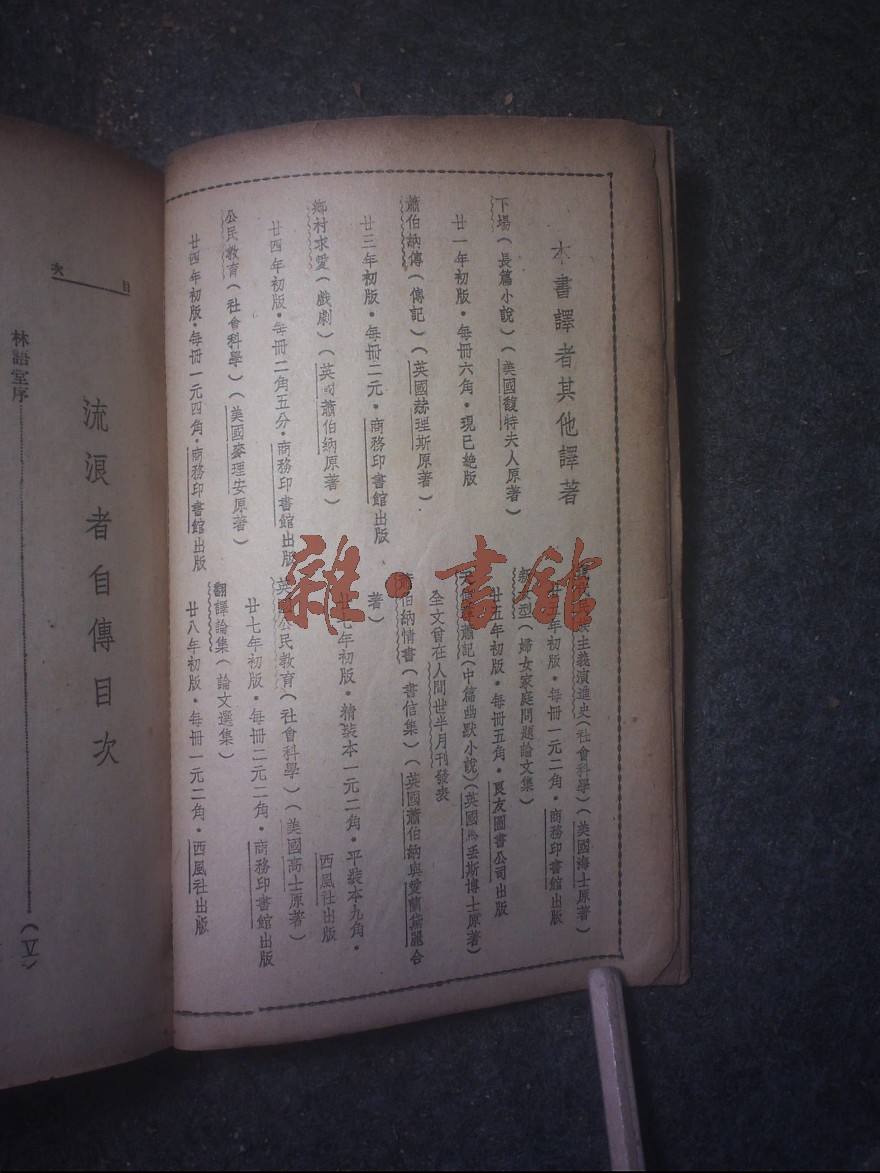 本書譯者其他譯著
下場(長篇小說)(美國馥特夫人原著)
廿一年初版・每冊六角・現已絕版
蕭伯納傳(傳記)(英國赫理斯原著)
廿三年初版・每冊二元・商務印書館出版
鄉村求愛(戲劇)(英國蕭伯納原著)
廿四年初版・每冊二角五分・商務印書館出版
公民教育(社會科學)(美國麥理安原著)
廿四年初版・每冊一元四角・商務印書館出版
主義演進史(社會科學)(美國海士原著)
年初版・每冊一元二角・商務印書館出版
型(婦女家庭問題論文集)
廿五年初版・每冊五角・良友圖書公司出版
記(中篇幽默小說)(英國丢斯博士原著)
全文曾在人間世半月刊發表
伯納情書(書信集)(英國蕭伯納與愛蘭黛麗合
著)
年初版・精裝本一元二角・平裝本九角・
西風社出版
英國公民教育(社會科學)(美國高士原著)
廿七年初版・每冊二元二角・商務印書館出版
翻譯論集(論文選集)
廿八年初版・每冊一元二角・西風社出版
雜・書館
目次
流浪者自傳目次
林語堂序